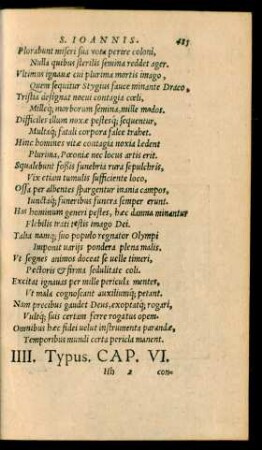 S. IOANNIS. 485
Plorabunt miseri sua vota perire coloni,
Nulla quibus sterilis semina reddet ager.
Vltimus ignauæ cui plurima mortis imago,
Quem sequitur Stygius fauce minante Draco,
Tristia designat nocui contagia cœli,
Milleq; morborum semina, mille modos.
Difficiles illum noxæ pestesq; sequentur,
Multaq; fatali corpora falce trahet.
Hinc homines vitæ contagia noxia ledent
Plurima, Pæoniæ nec locus artis erit.
Squalebunt fossis funebria rura sepulchris,
Vix etiam tumulis sufficiente loco,
Ossa per albentes spargentur inania campos,
Iunctaq; funeribus funera semper erunt.
Has hominum generi pestes, hæc damna minantur
Flebilis trati testis imago Dei.
Talia namq; suo populo regnator Olympi
Imponit uarijs pondera plena malis.
Vt segnes animos doceat se uelle timeri,
Pectoris & firma sedulitate coli.
Excitat ignauas per mille pericula mentes,
Vt mala cognoscant auxiliumq; petant.
Nam precibus gaudet Deus, exoptatq; rogari,
Vultq; suis certam ferre rogatus opem.
Omnibus hæc fidei uelut instrumenta parandæ,
Temporibus mundi certa pericla manent.
IIII. Typus. CAP. VI.
Hh 2 con-